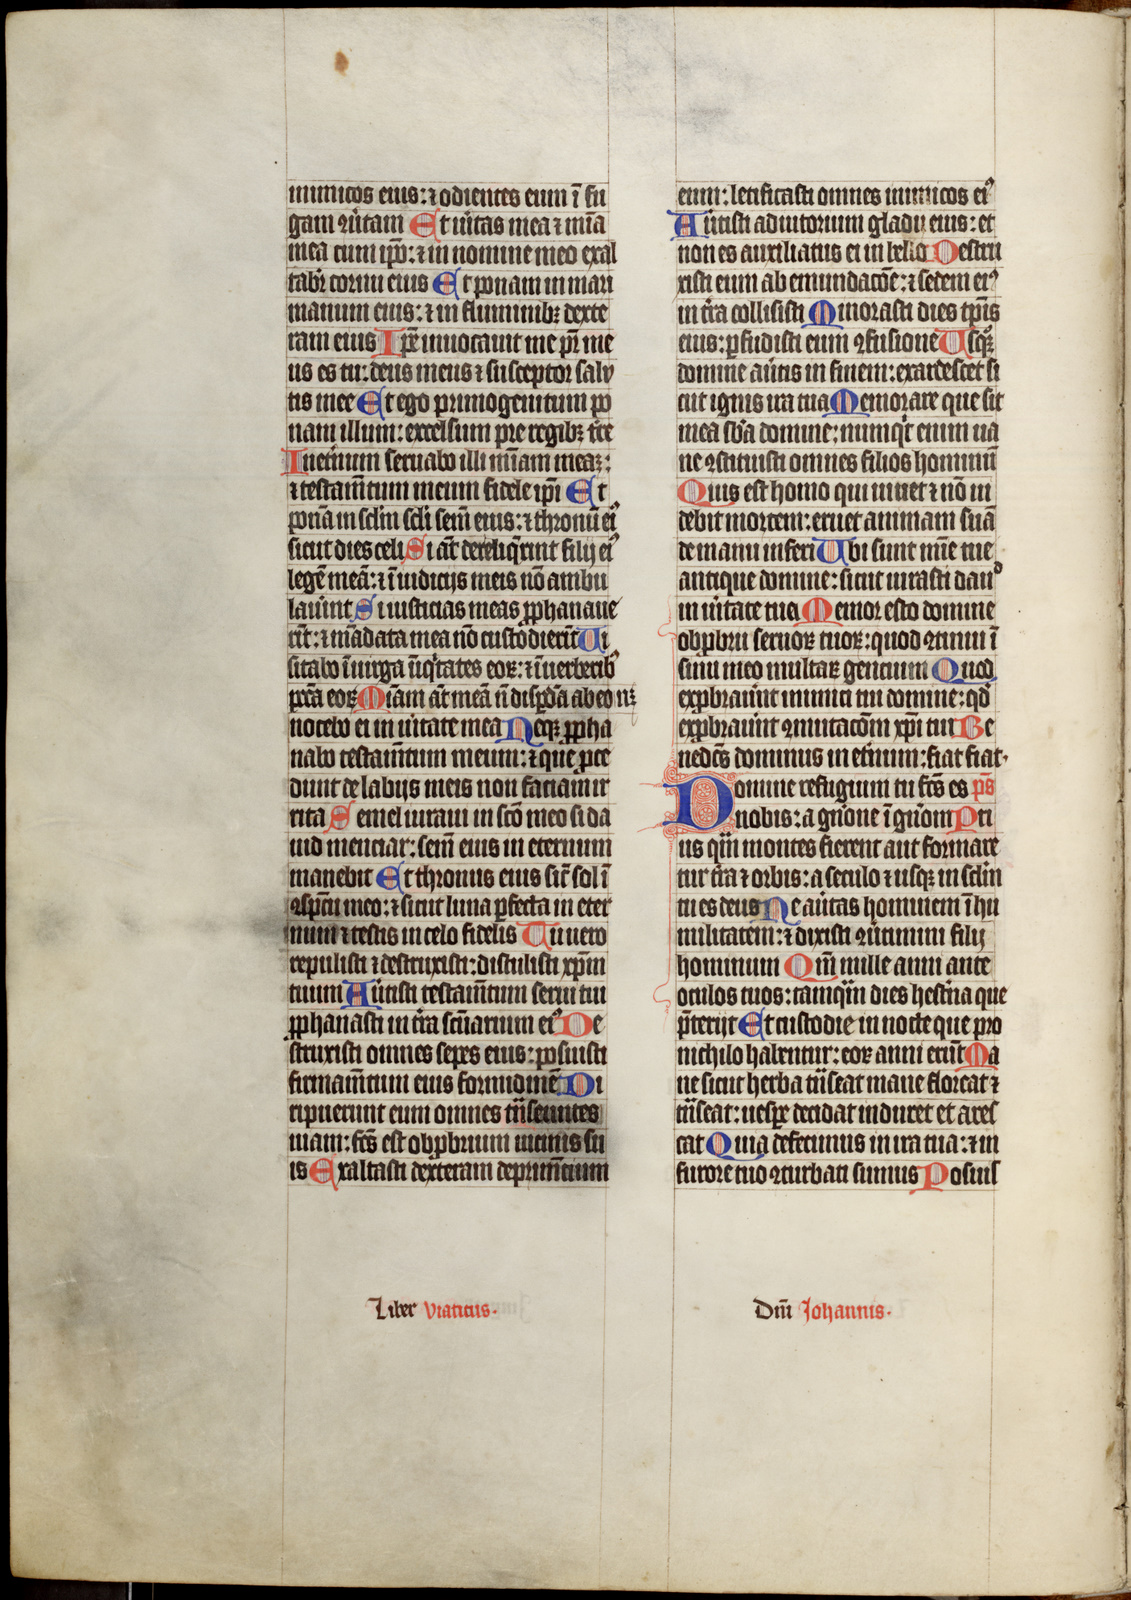 inimicos eius: ⁊ odientes eum ī fu
gam ꝯūtam Et ūitas mea ⁊ mīa
mea cum ip̄o: ⁊ in nomine meo exal
tabr̄ cornu eius Et ponam in mari
manum eius: ⁊ in fluminibꝫ dexte
ram eius Ip̄e inuocauit me pr̄ me
us es tu: deus meus ⁊ susceptor salu
tis mee Et ego primogenitum po
nam illum: excelsum pre regibꝫ tr̄e
Ineternum seruabo illi mīam meaꝫ:
⁊ testam̄tum meum fidele ip̄i Et
ponā in sclm̄ scl̄i sem̄ eius: ⁊ thronū eiꝰ
sicut dies celi Si aūt dereliq̄rint filij eiꝰ
legē meā: ⁊ ī iudicijs meis nō ambu
lauint Si iusticias meas ꝓphanaue
rīt: ⁊ mādata mea nō custodierīt Ui
sitabo ī uirga īiq̄tates eoꝝ: ⁊ ī uerberibꝰ
pc̄ta eoꝝ Mīam aūt meā n̄ disꝑdā ab eo nꝫ
nocebo ei in ūitate mea Neqꝫ ꝓpha
nabo testam̄tum meum: ⁊ que ꝓce
dunt de labijs meis non faciam ir
rita Semel iuraui in sc̄o meo si da
uid menciar: sem̄ eius in eternum
manebit Et thronus eius sic̄ sol ī
ꝯspc̄tu meo: ⁊ sicut luna ꝑfecta in eter
num ⁊ testis in celo fidelis Tu uero
repulisti ⁊ destruxisti: distulisti xp̄m
tuum Aūtisti testam̄tum serui tui
ꝓphanasti in tr̄a sc̄uarium eiꝰ De
struxisti omnes sepes eius: posuisti
firmam̄tum eius formidinē Di
ripuerunt eum omnes tn̄seuntes
uiam: fc̄s est obꝓbrium uicinis su
is Exaltasti dexteram deprim̄cium
eum: letificasti omnes inimicos eiꝰ
Aūtisti adiutorium gladij eius: et
non es auxiliatus ei in bello Destru
xisti eum ab emundacōe: ⁊ sedem eiꝰ
in tr̄a collisisti Minorasti dies tp̄is
eius: ꝑfudisti eum ꝯfusione Usq̄ꝫ
domine aūtis in finem: exardescet si
cut ignis ira tua Memorare que sit
mea sb̄a domine: numq̄t enim ua
ne ꝯstituisti omnes filios hominū
Quis est homo qui uiuet ⁊ nō ui
debit mortem: eruet animam suā
de manu inferi Ubi sunt mīe tue
antique domine: sicut iurasti dauᵈ
in ūitate tua Memor esto domine
obꝓbrij seruoꝝ tuoꝝ: quod ꝯtinui ī
sinu meo multaꝝ gencium Quod
exꝓbrauīt inimici tui domine: qd̄
exꝓbrauīt ꝯmutacōm xp̄i tui Be
nedc̄s dominus in etn̄um: fiat fiat.
Domine refugium tu fc̄s es p̄s
nobis: a gn̄one ī gn̄om Pri
us qm̄ montes fierent aut formare
tur tr̄a ⁊ orbis: a seculo ⁊ usqꝫ in sclm̄
tu es deus Ne aūtas hominem ī hu
militatem: ⁊ dixisti ꝯūtimini filij
hominum Qm̄ mille anni ante
oculos tuos: tamqm̄ dies hestn̄a que
p̄terijt Et custodie in nocte que pro
nichilo habentur: eoꝝ anni erūt Ma
ne sicut herba tn̄seat mane floreat ⁊
tn̄seat: uesꝑe decidat induret et ares
cat Quia defecimus in ira tua: ⁊ in
furore tuo ꝯturbati sumus Posuis
Liber viaticus.
Dm̄ Johannis.